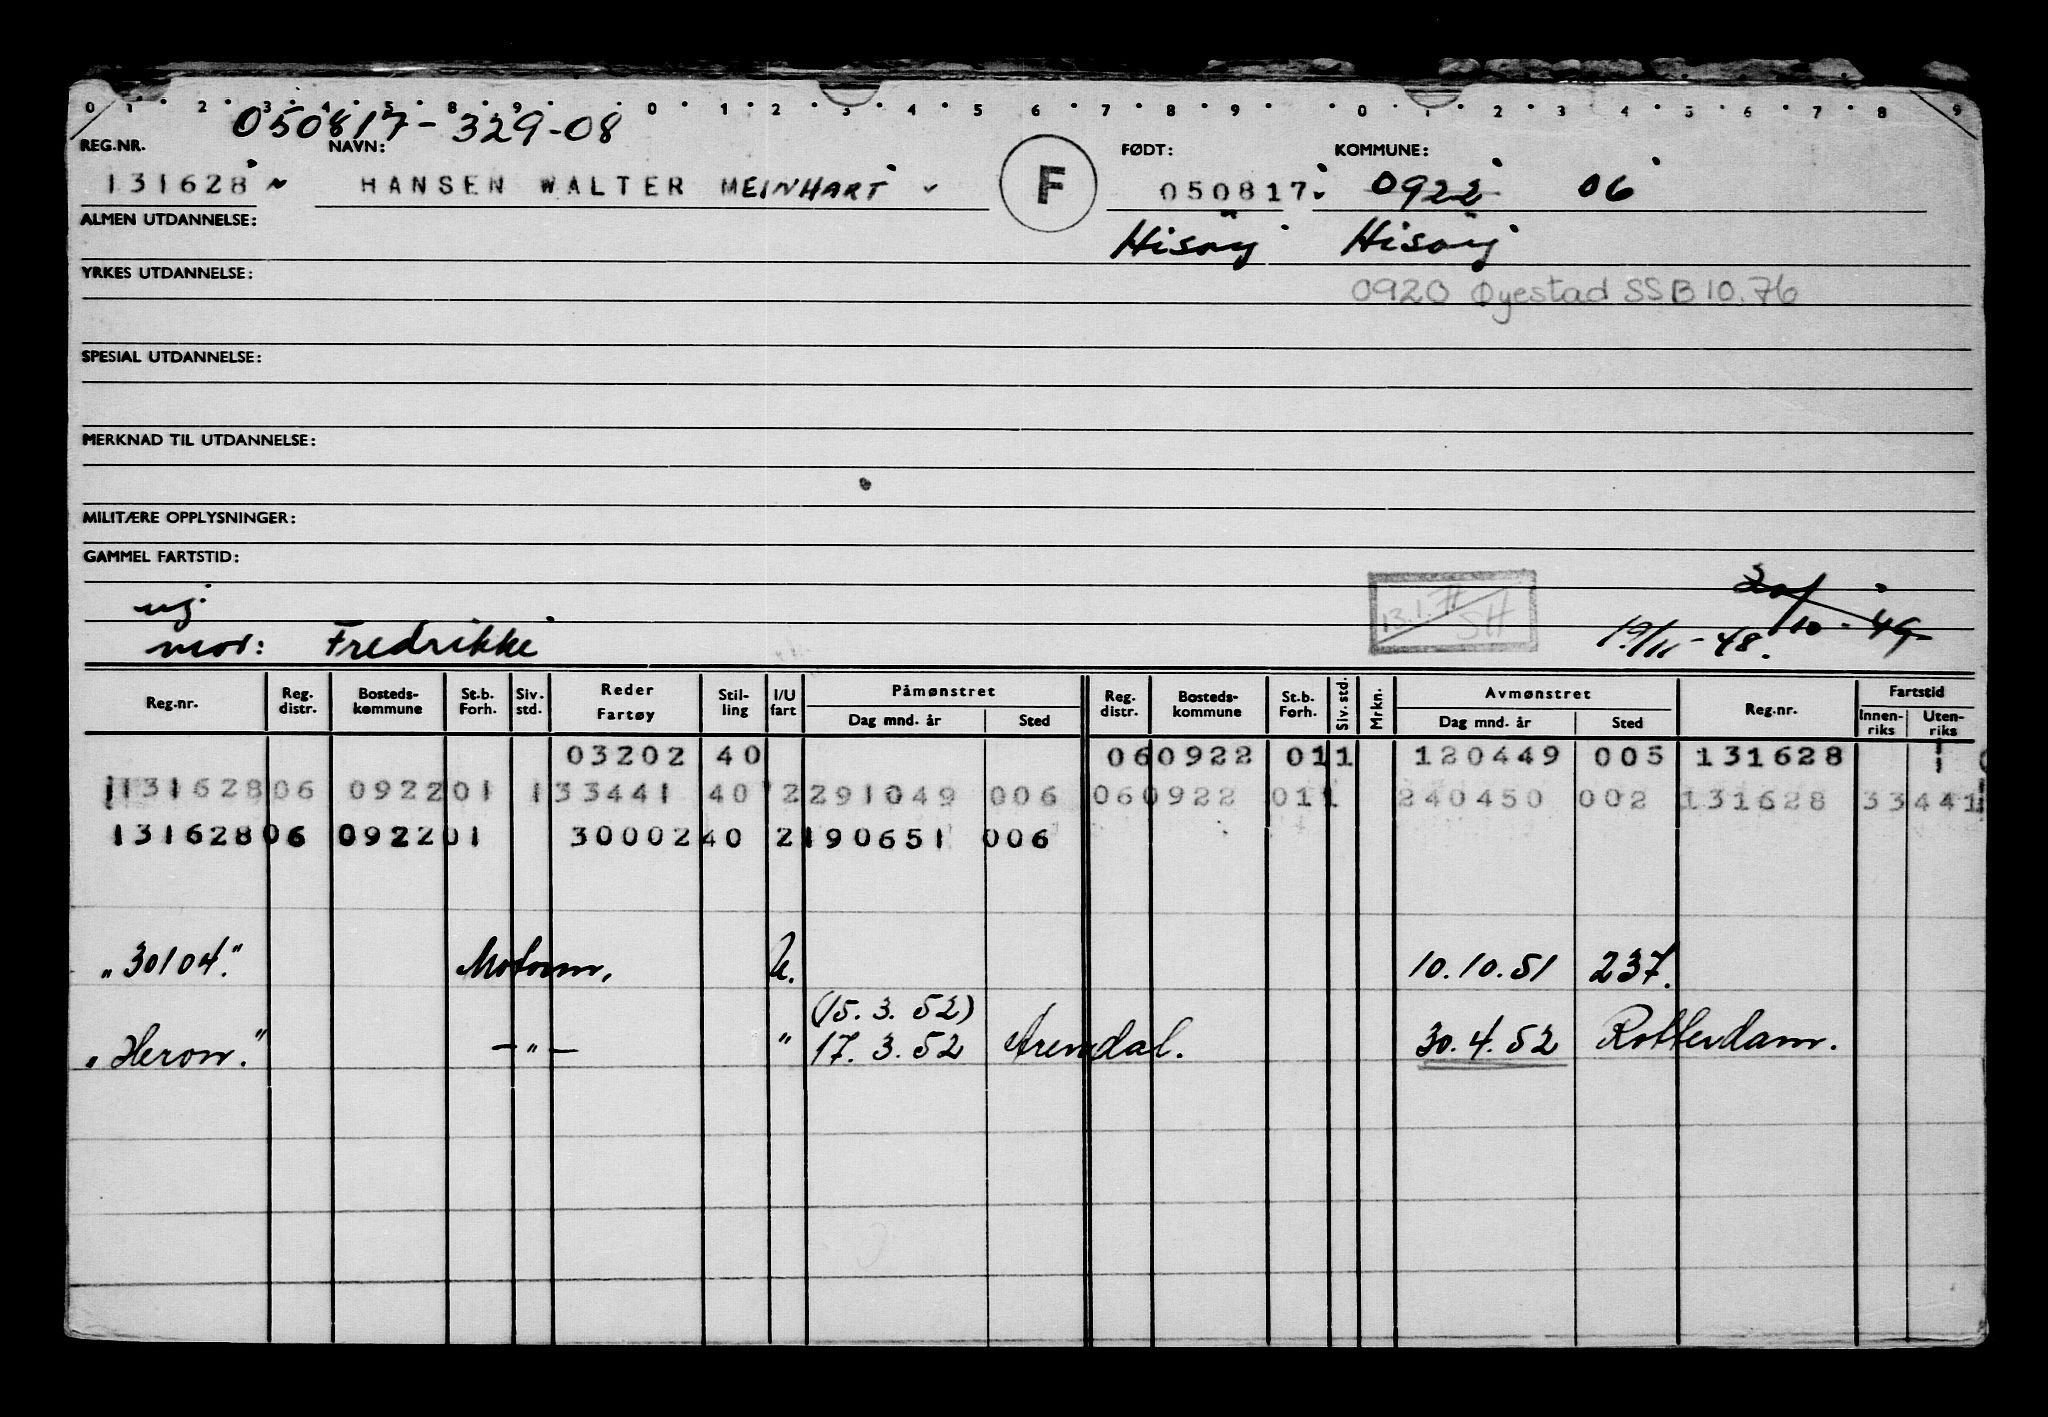 0 1 2 3 4 5 8 9 0 1 2 3 4 5 6 7 8 9 0 1 2 3 4 5 6 7 8 9
050817-329-08
REG.NR. NAVN: FØDT: KOMMUNE:
131628 HANSEN WALTER MEINHART F 050817 0922 06
ALMEN UTDANNELSE: Hisøy Hisøy
YRKES UTDANNELSE: 0920 Øyestad SSB 10.76
SPESIAL UTDANNELSE:
MERKNAD TIL UTDANNELSE:
MILITÆRE OPPLYSNINGER:
GAMMEL FARTSTID:
13.1. SH 19/11-48. 10-49
mor: Fredrikke
Reg.nr. Reg. distr. Bosteds-kommune St.b. Forh. Siv. std. Reder Fartøy Stil-ling I/U fart Påmønstret Dag mnd. år Sted Reg. distr. Bosteds-kommune St.b. Forh. Siv. std. Mrkn. Avmønstret Dag mnd. år Sted Reg.nr. Fartstid Innen-riks Uten-riks
03202 40 060922 011 120449 005 131628 1
131628 06 0922 01 1 33441 40 2 291049 006 060922 011 240450 002 131628 33441
131628 06 0922 01 30002 40 2 190651 006
"30104." Motorm. U. 10.10.51 237.
(15.3.52)
"Heron." -"- " 17.3.52 Arendal. 30.4.52 Rotterdam.